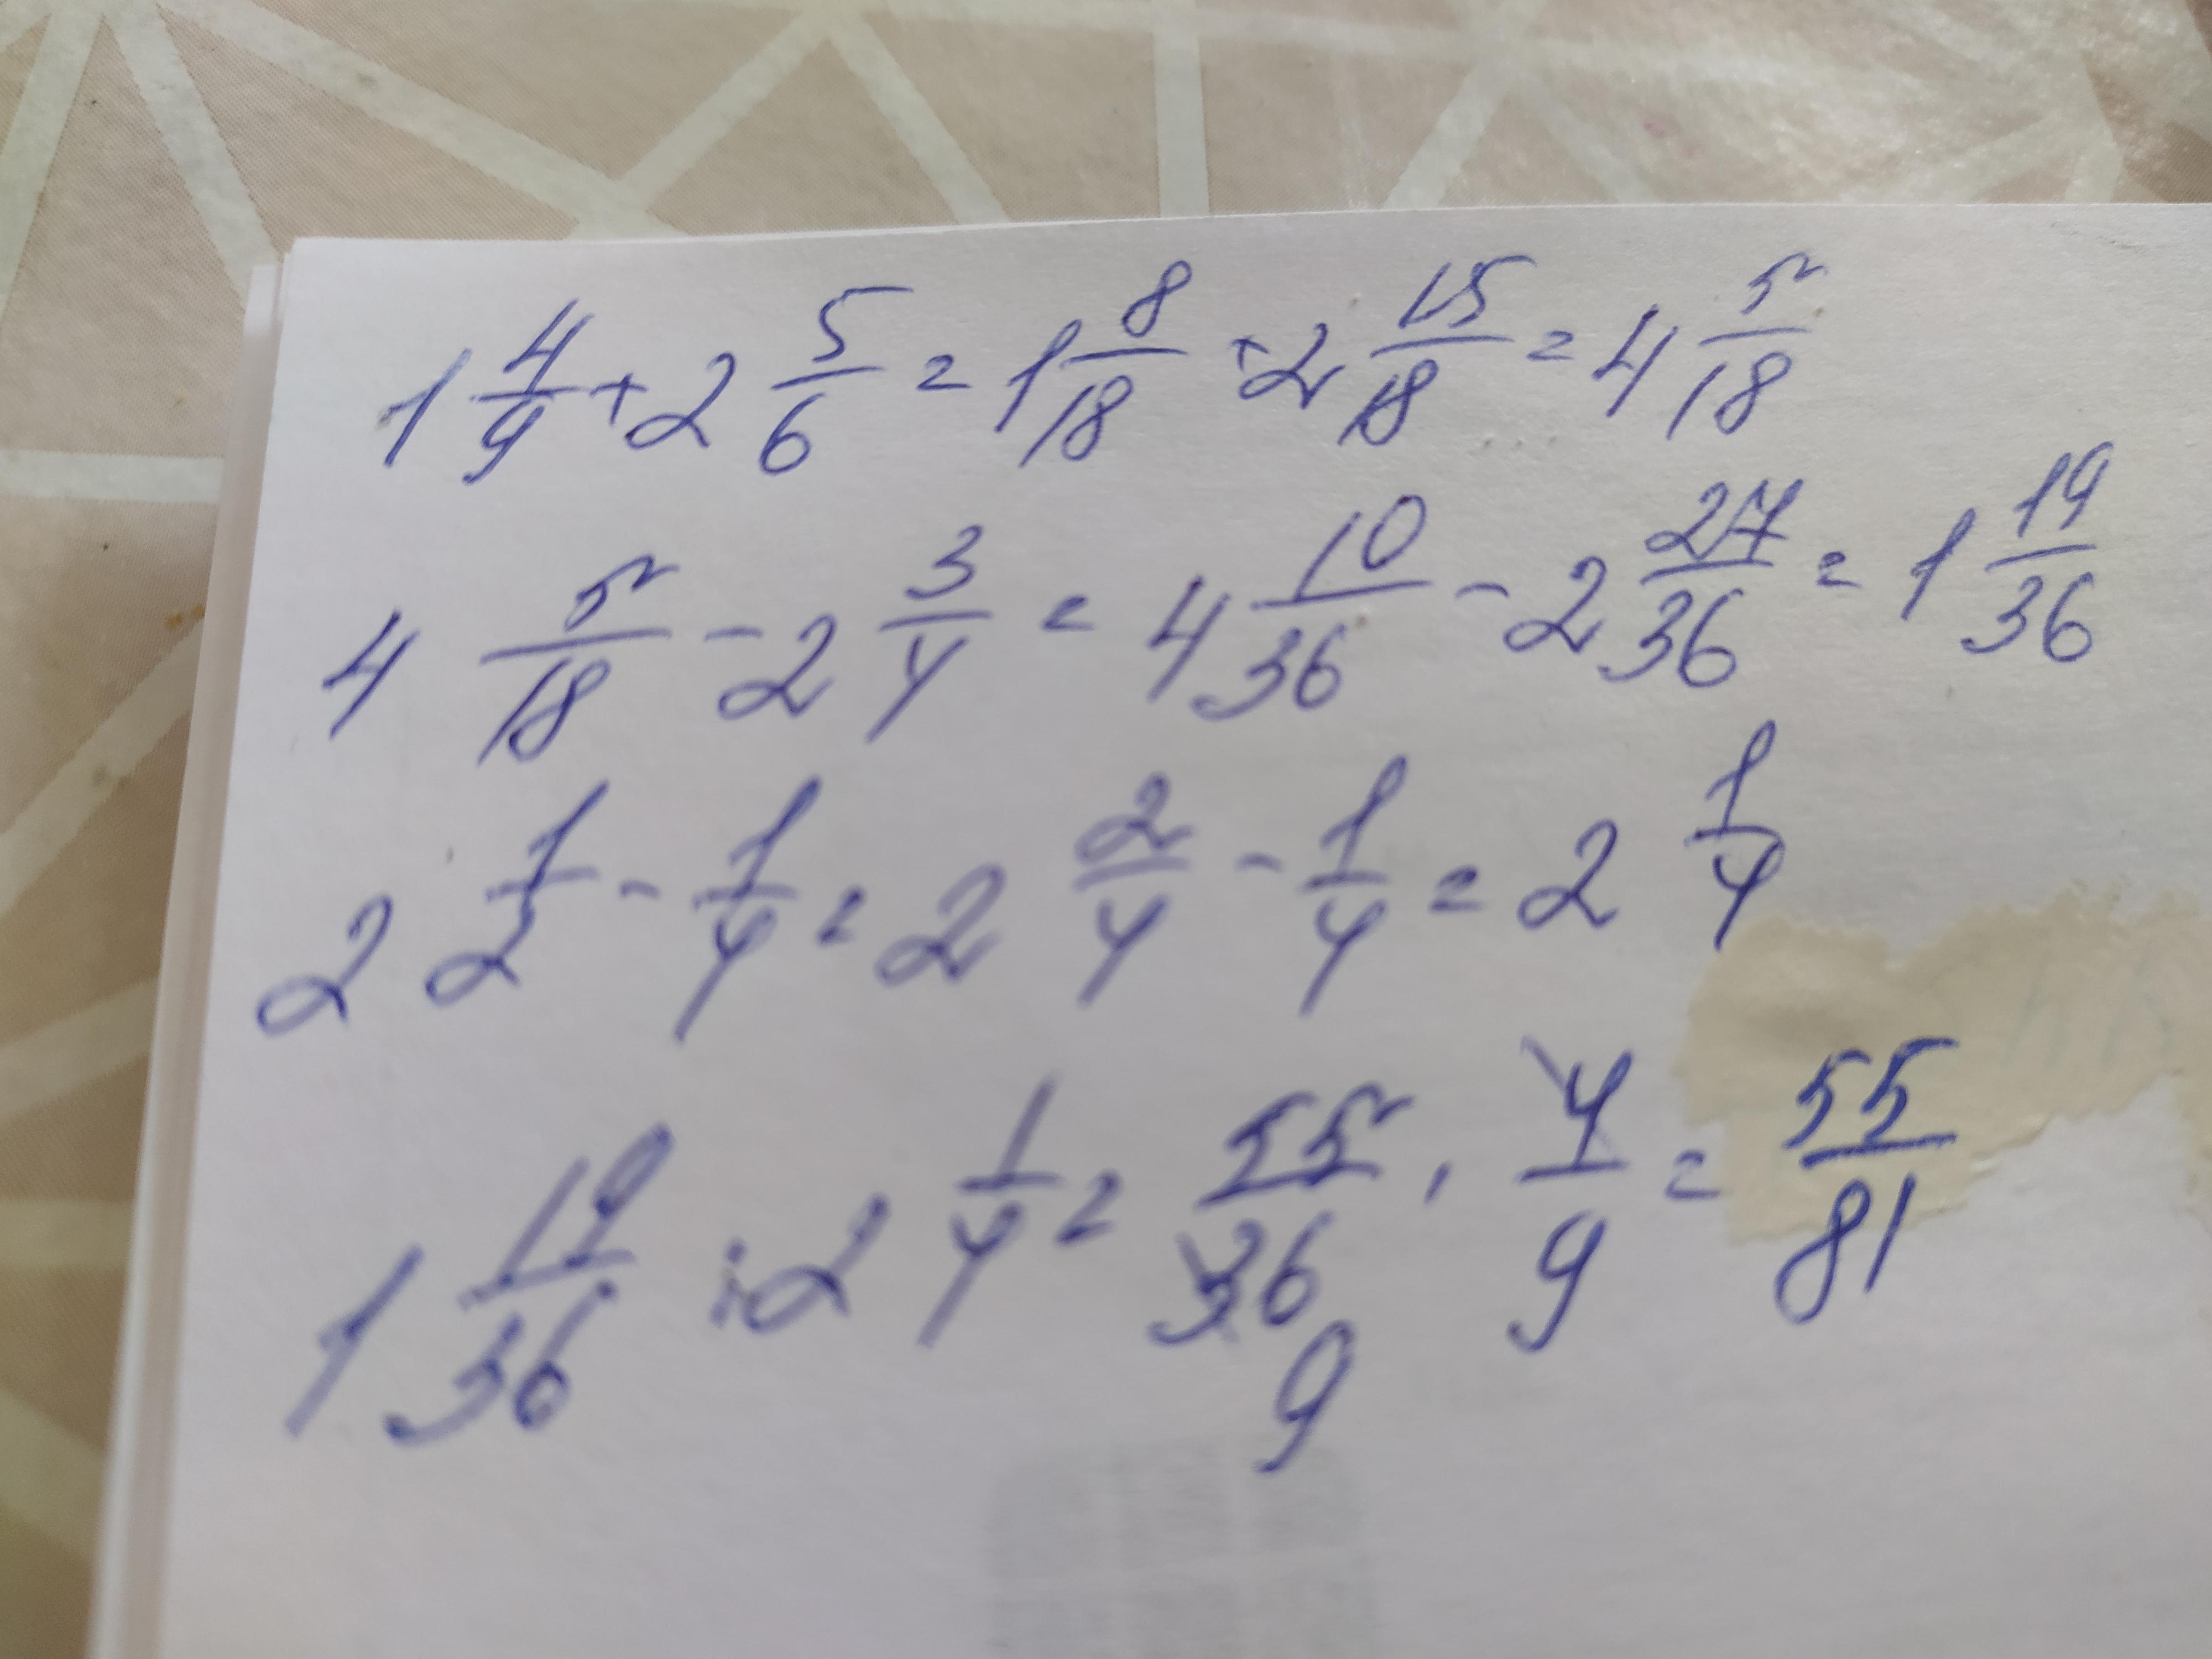 1 4/9 + 2 5/6 = 1 8/18 + 2 15/18 = 4 5/18
4 5/18 - 2 3/4 = 4 10/36 - 2 27/36 = 1 19/36
2 1/2 - 1/4 = 2 2/4 - 1/4 = 2 1/4
1 19/36 : 2 1/4 = 55/36 · 4/9 = 55/81
9